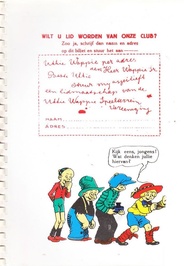 WILT U LID WORDEN VAN ONZE CLUB?
Zoo ja, schrijf dan naam en adres
op dit biljet en stuur het aan
Ukkie Wappie per adres
aan Heer Wappie Sr.
Ukkie
stuur mij asjeblieft
een lidmaatschap van de
Ukkie Wappie
Vereeniging
NAAM
ADRES
Kijk eens, jongens!
Wat denken jullie
hiervan?